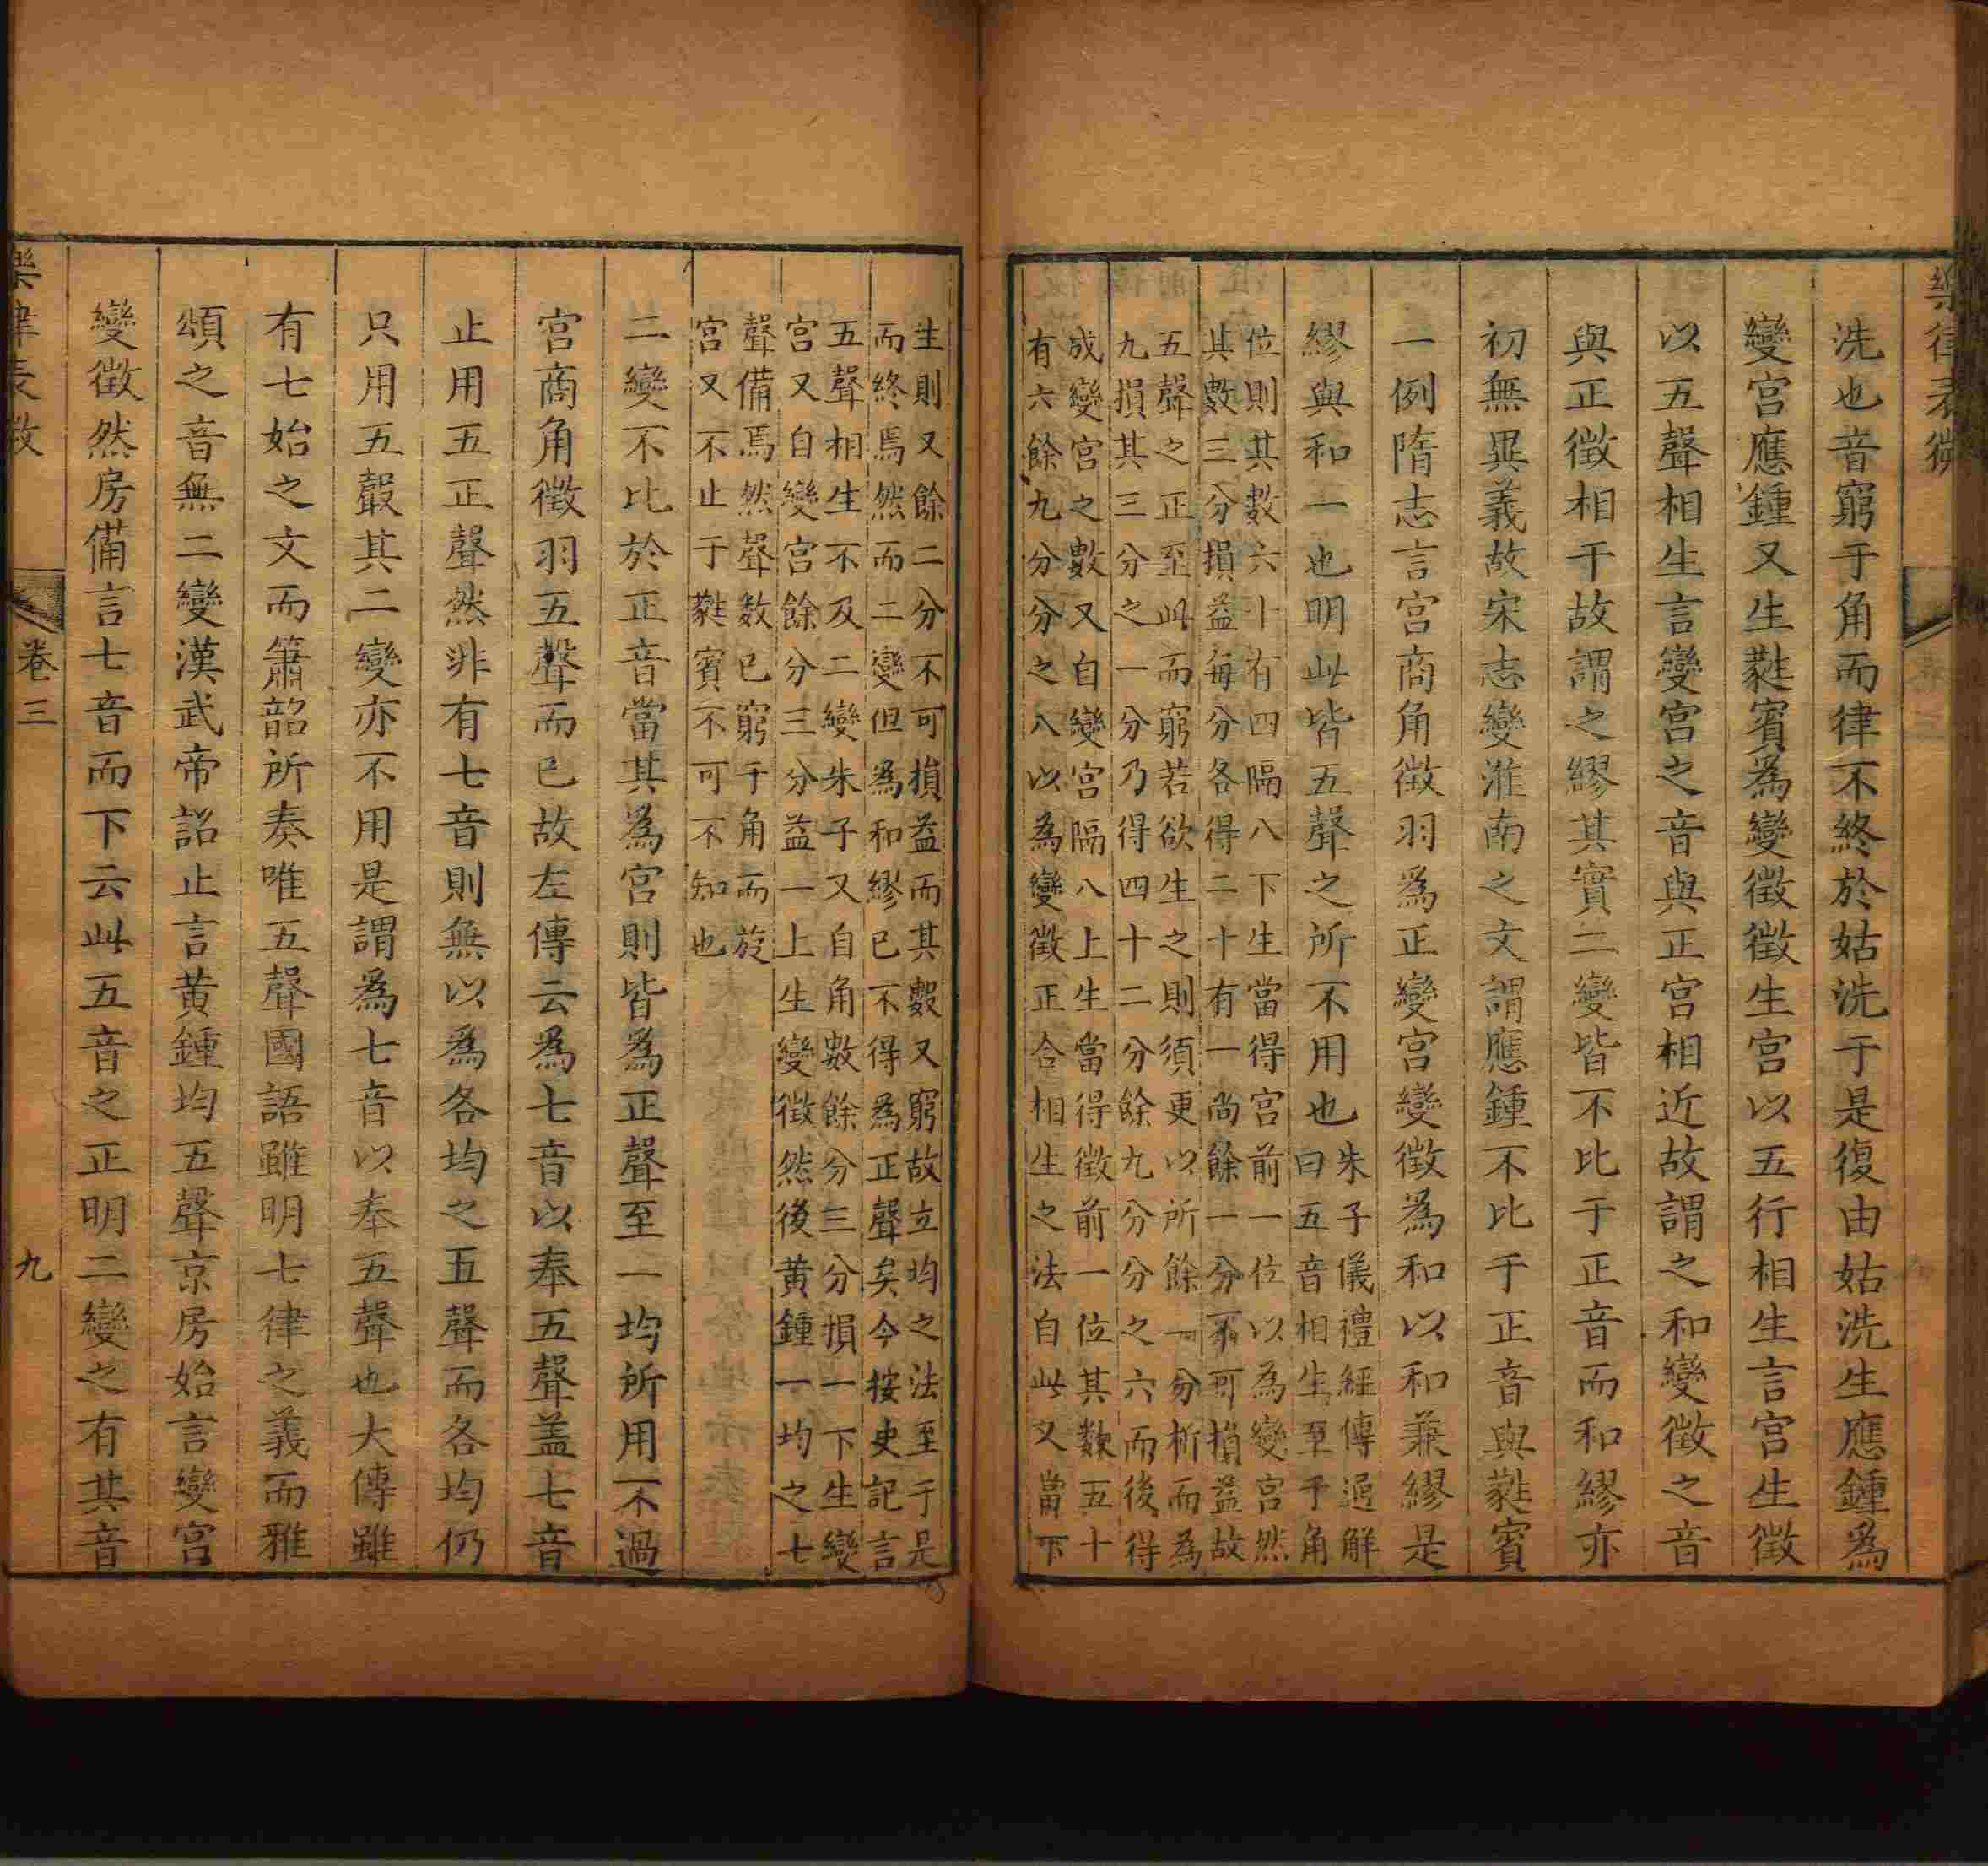 樂律表微
洗也音窮于角而律不終於姑洗于是復由姑洗生應鍾爲
變宮應鍾又生蕤賓爲變徵徵生宮以五行相生言宮生徵
以五聲相生言變宮之音與正宮相近故謂之和變徵之音
與正徵相干故謂之繆其實二變皆不比于正音而和繆亦
初無異義故宋志變淮南之文謂應鍾不比于正音與蕤賓
一例隋志言宮商角徵羽爲正變宮變徵爲和以和兼繆是
繆與和一也明此皆五聲之所不用也
朱子儀禮經傳通解
曰五音相生至于角
位則其數六十有四隔八下生當得宮前一位以為變宮然
其數三分損益每分各得二十有一尚餘一分不可損益故
五聲之正至此而窮若欲生之則須更以所餘一分析而為
九損其三分之一分乃得四十二分餘九分分之六而後得
成變宮之數又自變宮隔八上生當得徵前一位其數五十
有六餘九分分之八以為變徵正合相生之法自此又當下
生則又餘二分不可損益而其數又窮故立均之法至于是
而終焉然而二變但為和繆已不得為正聲矣今按史記言
五聲相生不及二變朱子又自角數餘分三分損一下生變
宮又自變宮餘分三分益一上生變徵然後黃鍾一均之七
聲備焉然聲数已窮于角而旋
宮又不止于蕤賓不可不知也
二變不比於正音當其爲宮則皆爲正聲至一均所用不過
宮商角徵羽五聲而已故左傳云爲七音以奉五聲盖七音
止用五正聲然非有七音則無以爲各均之五聲而各均仍
只用五聲其二變亦不用是謂爲七音以奉五聲也大傳雖
有七始之文而簫韶所奏唯五聲國語雖明七律之義而雅
頌之音無二變漢武帝詔止言黃鍾均五聲京房始言變宮
變徵然房備言七音而下云此五音之正明二變之有其音
樂律表微
卷三
九